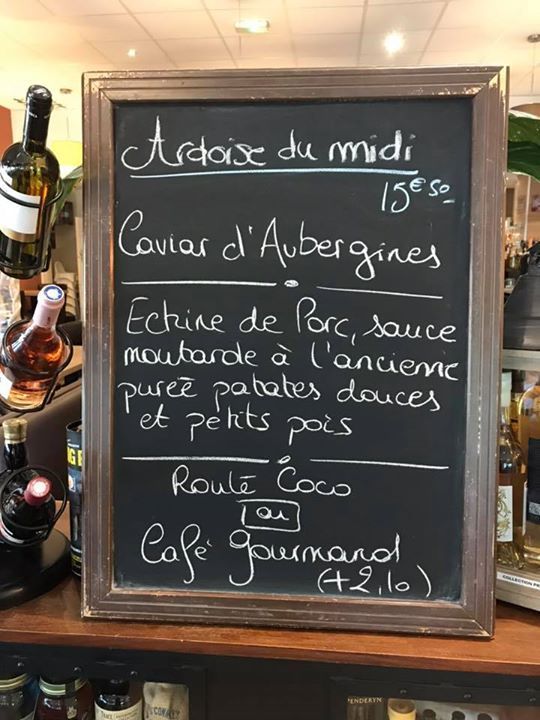 Ardoise du midi
15€50
Caviar d'Aubergines
Echine de Porc, sauce
moutarde à l'ancienne
purée patates douces
et petits pois
Roulé Coco
ou
Café gourmand
(+2,10)
COLLECTION PR
PENDERYN